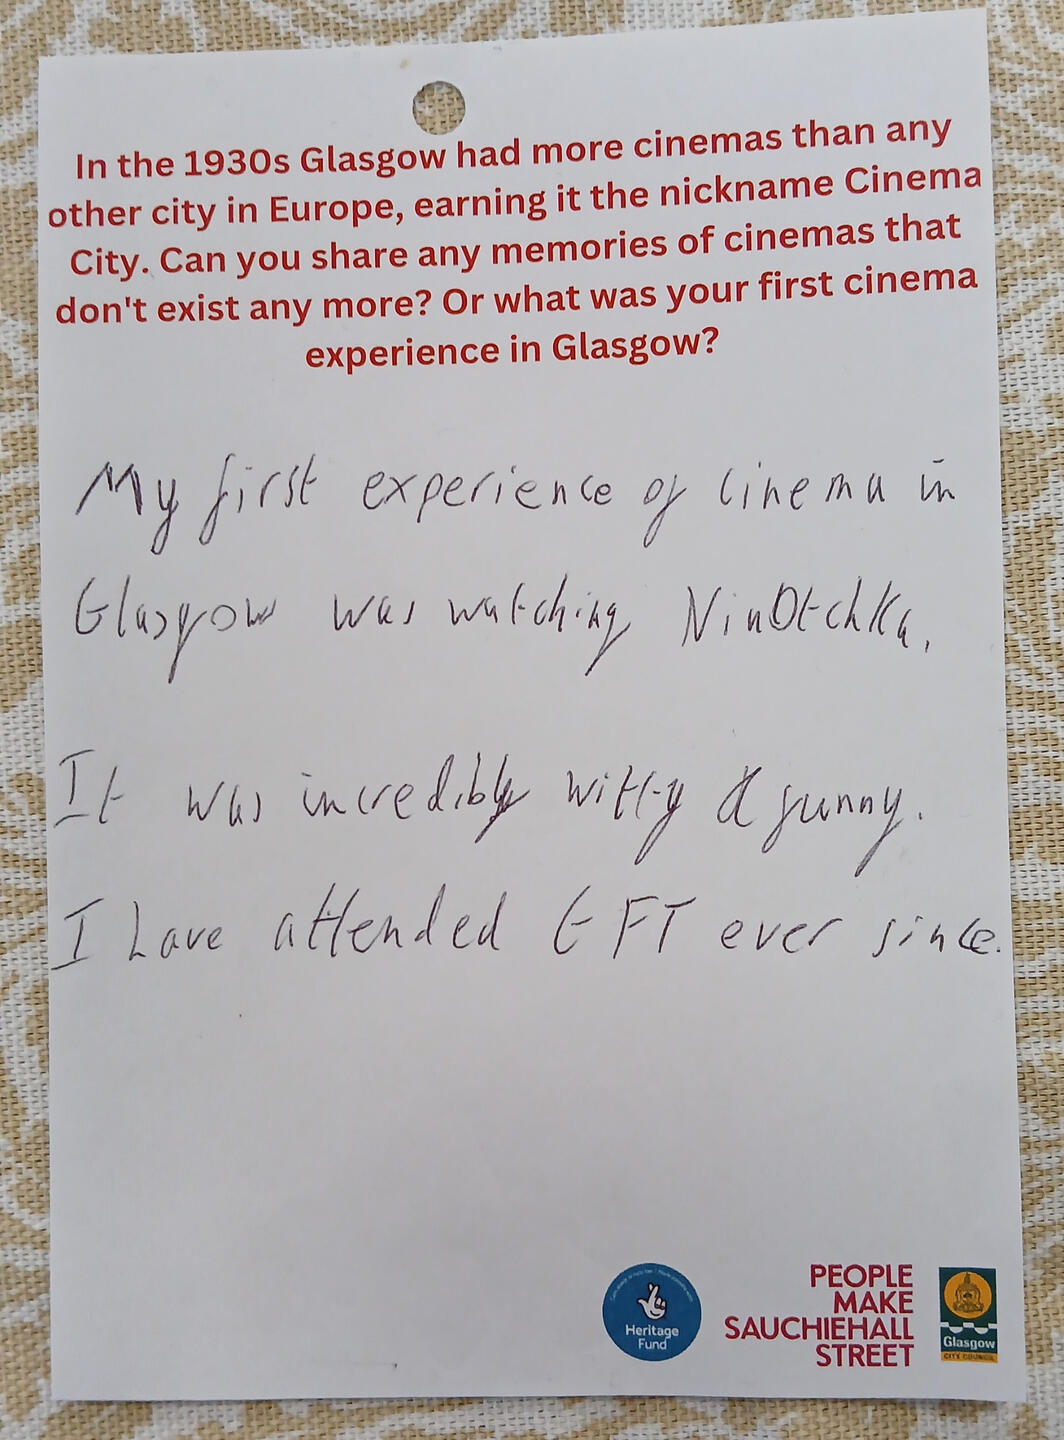 In the 1930s Glasgow had more cinemas than any
other city in Europe, earning it the nickname Cinema
City. Can you share any memories of cinemas that
don't exist any more? Or what was your first cinema
experience in Glasgow?
My first experience of cinema in
Glasgow was watching NinOtchKa.
It was incredibly witty & funny.
I have attended GFT ever since.
Heritage
Fund
PEOPLE
MAKE
SAUCHIEHALL
STREET
Glasgow
CITY COUNCIL